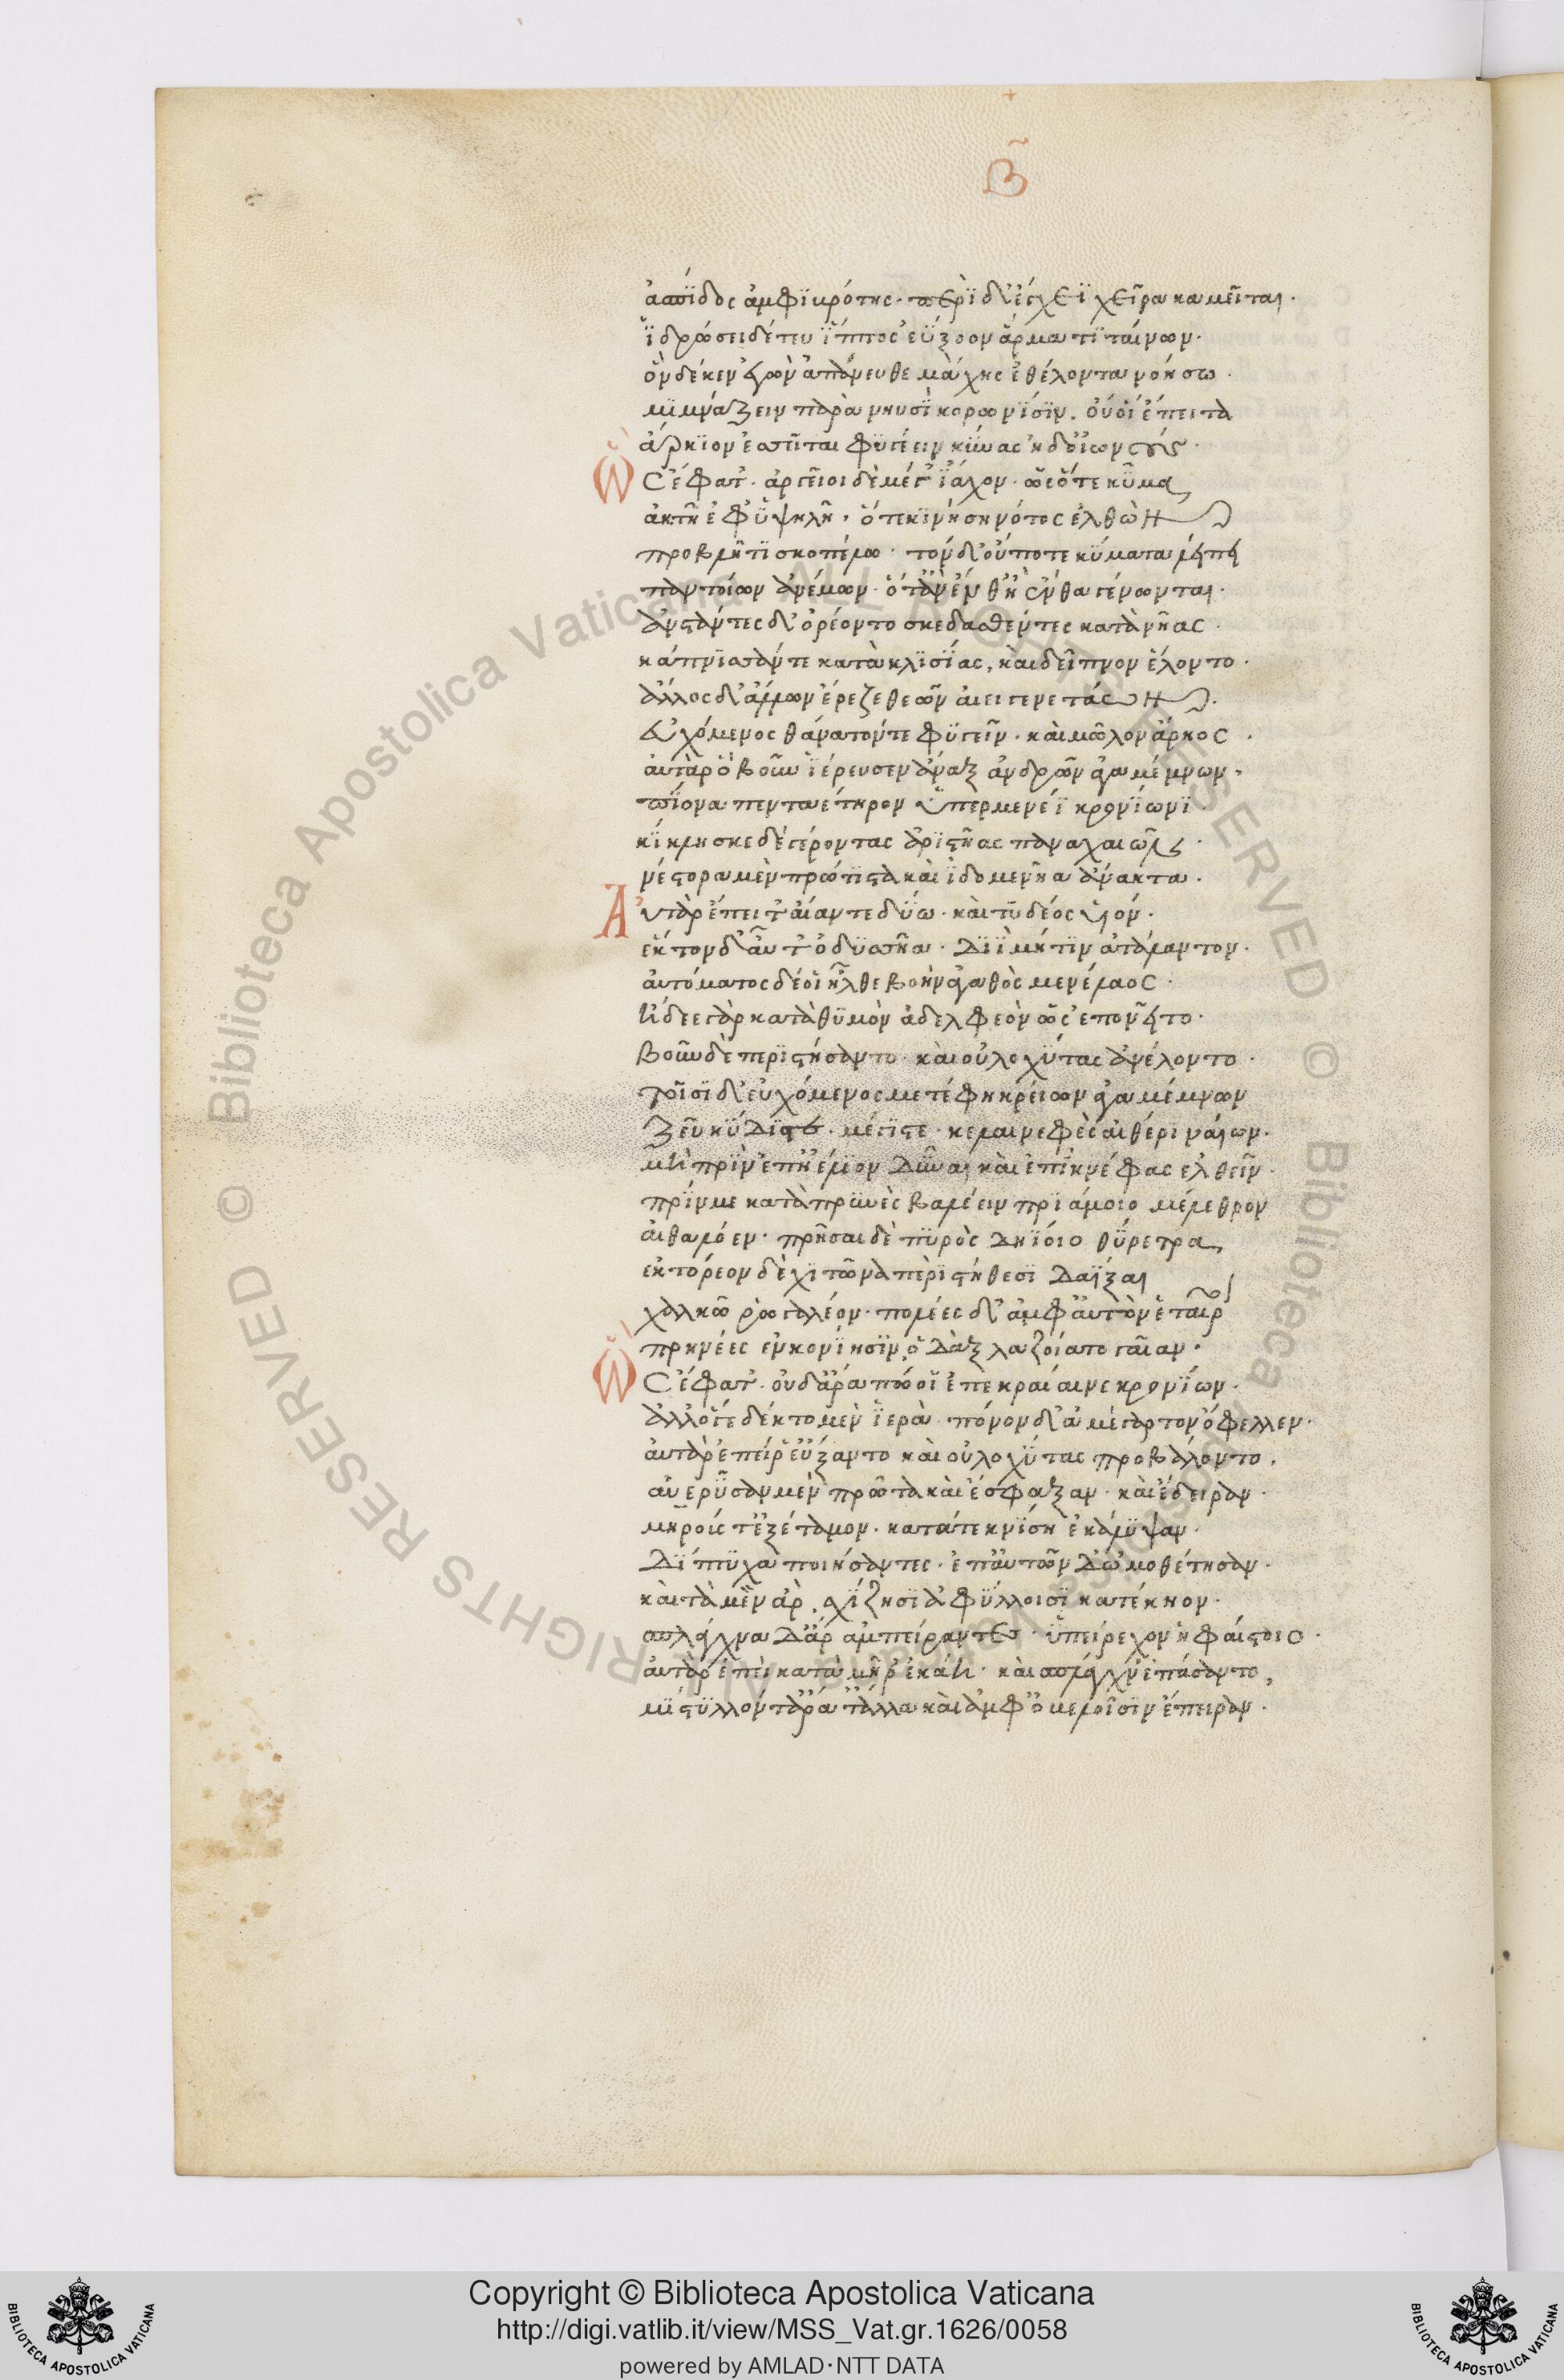 Β
ἀσπίδος ἀμφιβρότης· περὶ δ' ἔγχεϊ χεῖρα καμεῖται·
ἱδρώσει δέ τευ ἵππος ἐύξοον ἅρμα τιταίνων·
ὃν δέ κεν ἐγὼν ἀπάνευθε μάχης ἐθέλοντα νοήσω·
μιμνάζειν παρὰ νηυσὶ κορωνίσιν. οὔ οἱ ἔπειτα
ἄρκιον ἐσσεῖται φυγέειν κύνας ἠδ' οἰωνούς·
Ὣς ἔφατ'· ἀργεῖοι δὲ μέγ' ἴαχον· ὡς ὅτε κῦμα
ἀκτῇ ἐφ' ὑψηλῇ· ὅτε κινήσῃ νότος ἐλθών
προβλῆτι σκοπέλῳ· τὸν δ' οὔποτε κύματα λείπει
παντοίων ἀνέμων· ὅταν ἔνθ' ἢ ἔνθα γένωνται·
ἀνστάντες δ' ὀρέοντο σκεδασθέντες κατὰ νῆας·
κάπνισσάν τε κατὰ κλισίας, καὶ δεῖπνον ἕλοντο·
ἄλλος δ' ἄλλων ἔρεζε θεῶν αἰειγενετάων·
εὐχόμενος θάνατόν τε φυγεῖν· καὶ μῶλον ἄρηος·
αὐτὰρ ὃ βοῦν ἱέρευσεν ἄναξ ἀνδρῶν ἀγαμέμνων·
πίονα πενταέτηρον ὑπερμενέϊ κρονίωνι·
κίκλησκε δὲ γέροντας ἀριστῆας παναχαιῶν·
νέστορα μὲν πρώτιστα καὶ ἰδομενῆα ἄνακτα·
Αὐτὰρ ἔπειτ' αἴαντε δύω· καὶ τυδέος υἱόν·
ἕκτον δ' αὖτ' ὀδυσῆα· Διὶ μῆτιν ἀτάλαντον·
αὐτόματος δέ οἱ ἦλθε βοὴν ἀγαθὸς μενέλαος·
ᾔδεε γὰρ κατὰ θυμὸν ἀδελφεὸν ὡς ἐπονεῖτο·
βοῦν δὲ περιστήσαντο· καὶ οὐλοχύτας ἀνέλοντο·
τοῖσι δ' εὐχόμενος μετέφη κρείων ἀγαμέμνων
Ζεῦ κύδιστε· μέγιστε· κελαινεφὲς αἰθέρι ναίων·
μὴ πρὶν ἐπ' ἠέλιον δῦναι καὶ ἐπὶ κνέφας ἐλθεῖν·
πρίν με κατὰ πρηνὲς βαλέειν πριάμοιο μέλεθρον
αἰθαλόεν· πρῆσαι δὲ πυρὸς δηΐοιο θύρετρα
ἑκτόρεον δὲ χιτῶνα περὶ στήθεσι δαΐξαι
χαλκῷ ῥωγαλέον· πολέες δ' ἀμφ' αὐτὸν ἑταῖροι
πρηνέες ἐν κονίῃσιν ὀδὰξ λαζοίατο γαῖαν·
Ὣς ἔφατ'· οὐδ' ἄρα πώ οἱ ἐπεκραίαινε κρονίων·
ἀλλ' ὅ γε δέκτο μὲν ἱερὰ· πόνον δ' ἀμέγαρτον ὄφελλεν·
αὐτὰρ ἐπεί ῥ' εὔξαντο καὶ οὐλοχύτας προβάλοντο.
αὐέρυσαν μὲν πρῶτα καὶ ἔσφαξαν· καὶ ἔδειραν·
μηρούς τ' ἐξέταμον· κατά τε κνίσῃ ἐκάλυψαν·
Δίπτυχα ποιήσαντες· ἐπ' αὐτῶν δ' ὠμοθέτησαν·
καὶ τὰ μὲν ἂρ σχίζῃσιν ἀφύλλοισι κατέκηον·
σπλάγχνα δ' ἄρ' ἀμπείραντες· ὑπείρεχον ἡφαίστοιο·
αὐτὰρ ἐπεὶ κατὰ μῆρ' ἐκάη· καὶ σπλάγχν' ἐπάσαντο,
μίστυλλόν τ' ἄρα τἄλλα καὶ ἀμφ' ὀβελοῖσιν ἔπειραν·
Copyright © Biblioteca Apostolica Vaticana
http://digi.vatlib.it/view/MSS_Vat.gr.1626/0058
powered by AMLAD·NTT DATA
BIBLIOTECA APOSTOLICA VATICANA
BIBLIOTECA APOSTOLICA VATICANA
© Biblioteca Apostolica Vaticana ALL RIGHTS RESERVED © Biblioteca Apostolica Vaticana ALL RIGHTS RESERVED